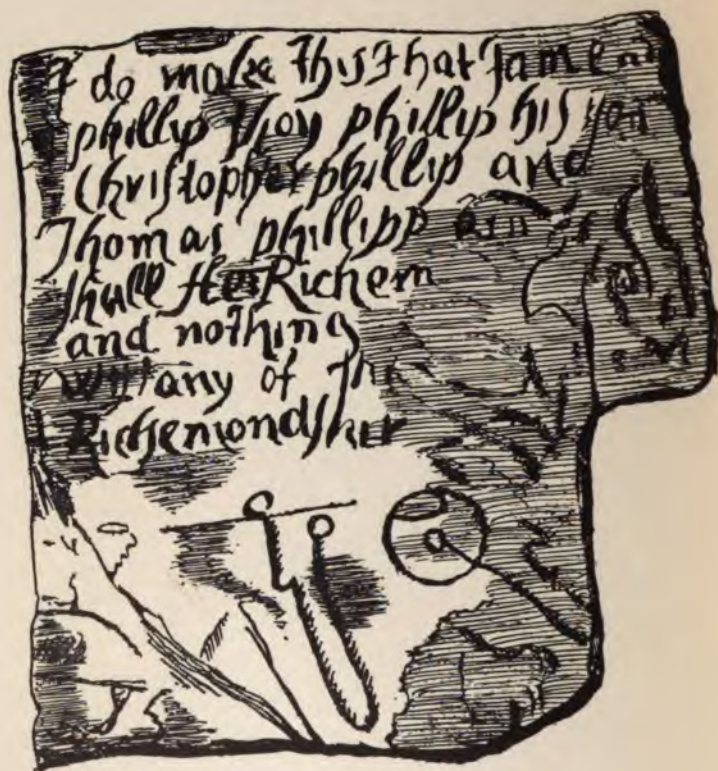 I do make This That Jame
phillip phillip his
Christopher phillip and
Thomas phillipp
shall fle Richem
and nothing
any of The
Richemondshir